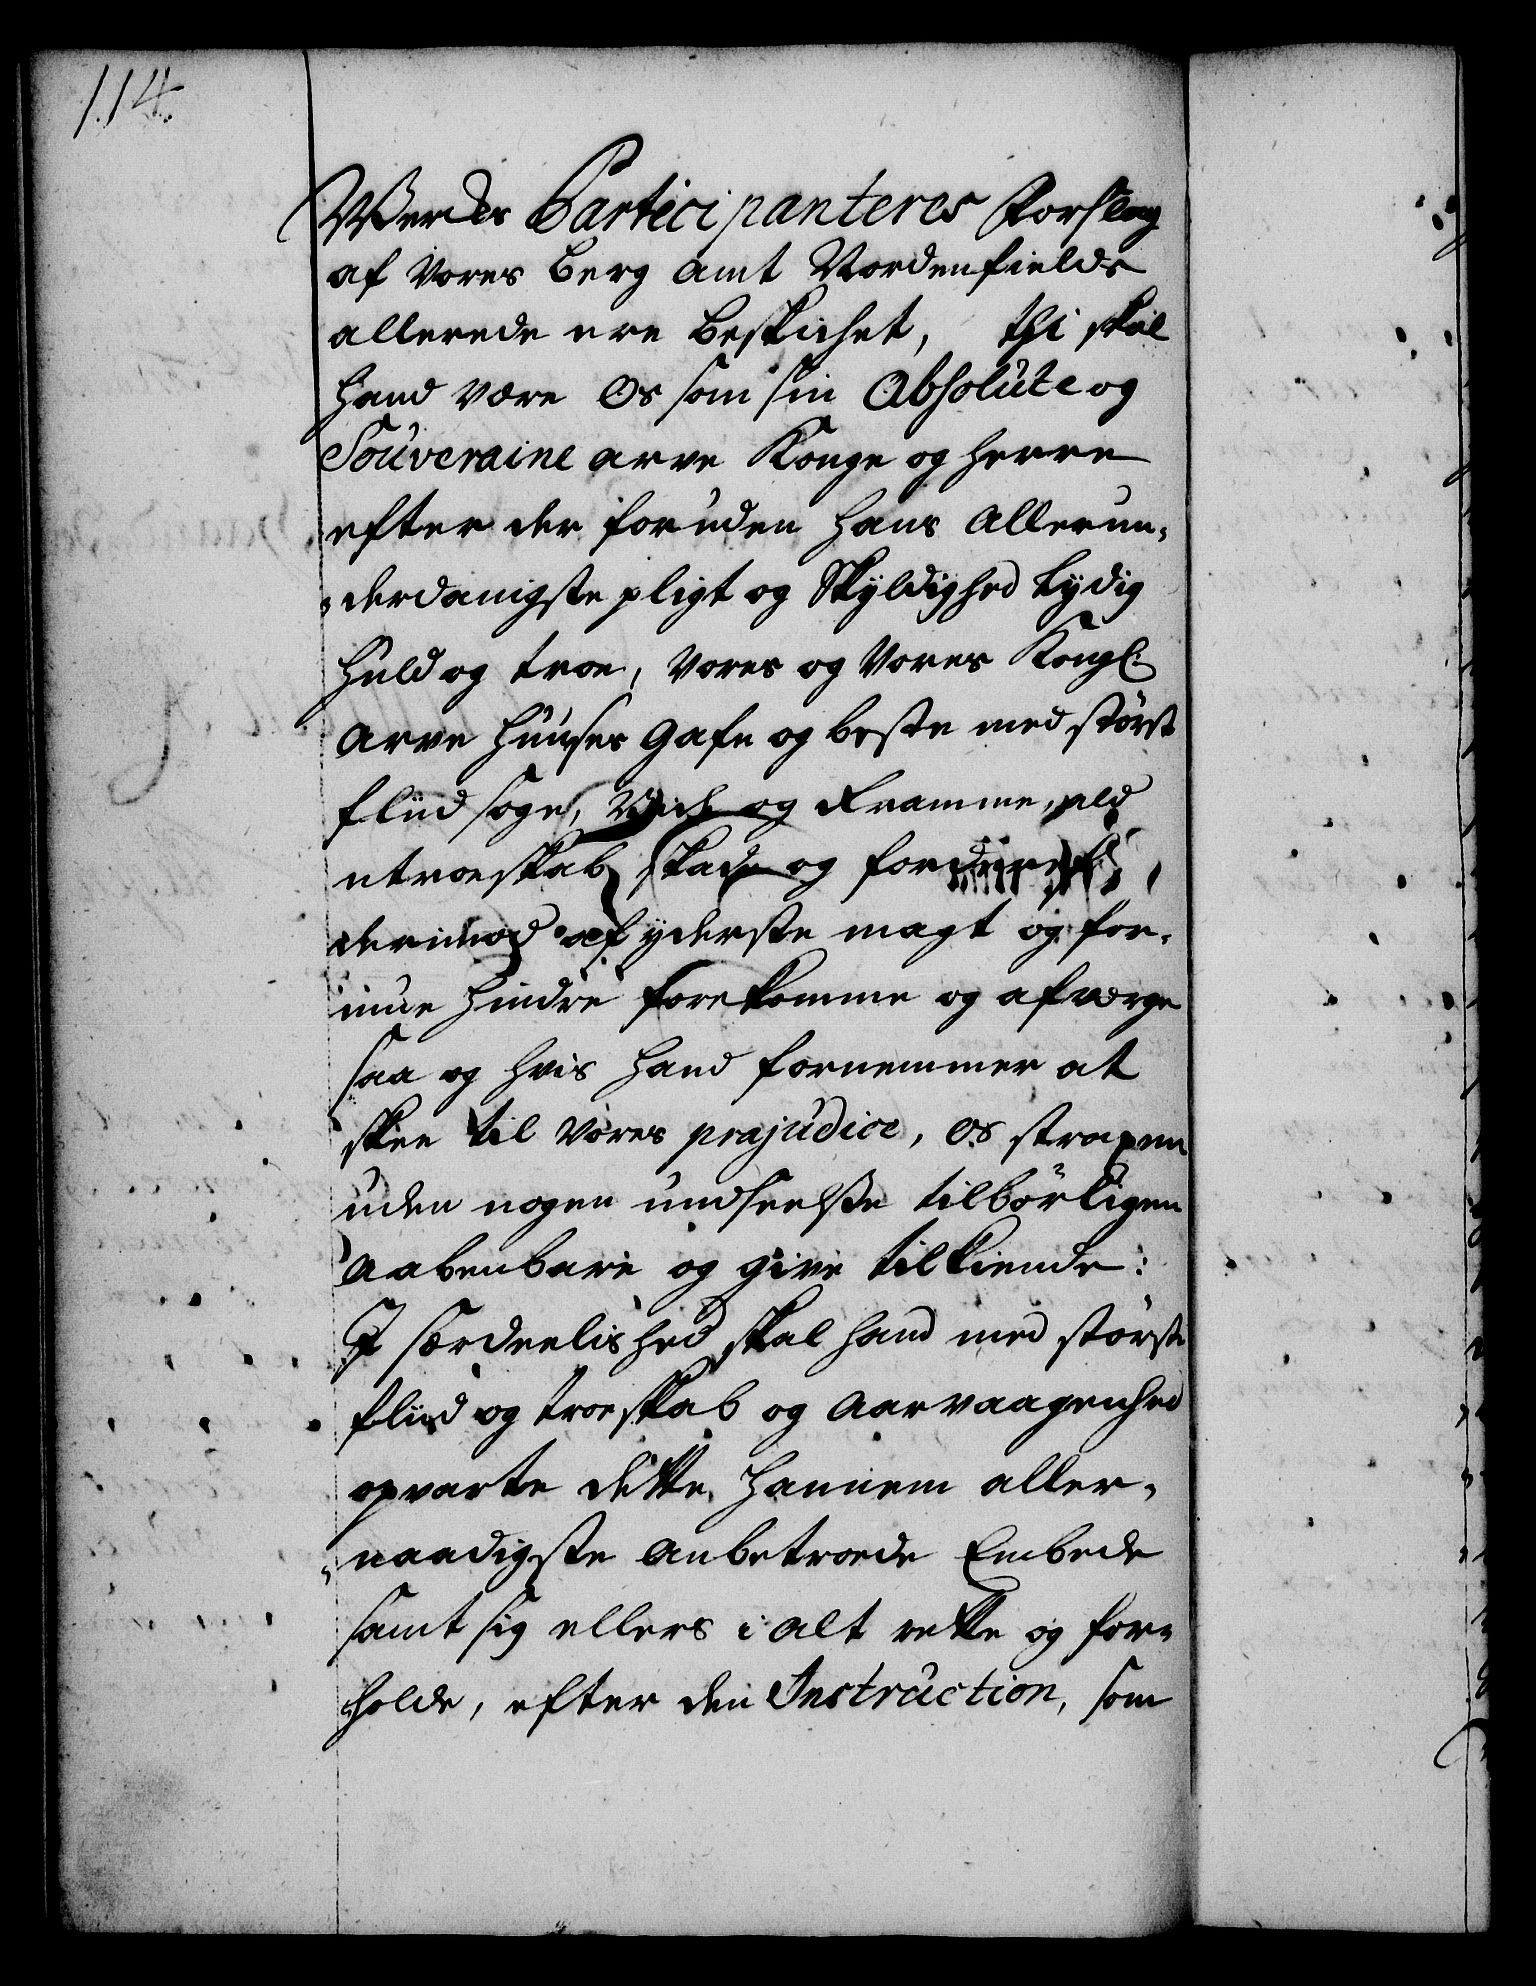 114.
Werckes Participanteres Forslag
af Vores Berg Amt Nordenfields
allerede ere beskichet, thi skal
hand være Os som sin Absolute og
Souveraine arve Konge og Herre
efter der foruden hans Allerun-
derdanigste pligt og Skyldighed lydig
huld og troe, Vores og Vores Kongl:
Arve Huuses Gafn og beste med størst
fliid søge, Vide og Ramme, ald
utroeskab skade og forderf,
derimod af yderste magt og for-
mue hindre forekomme og afværge
saa og hvis hand fornemmer at
skee til Vores prajudice, os straxen
uden nogen undseelse tilbørligen
Aabenbare og give tilkiende:
I særdeelished skal hand med størst
fliid og troeskab og Aarvaagenhed
opvarte dette hannem aller-
naadigste Anbetroede Embede
samt sig ellers i alt rette og for-
holde, efter den Instruction, som